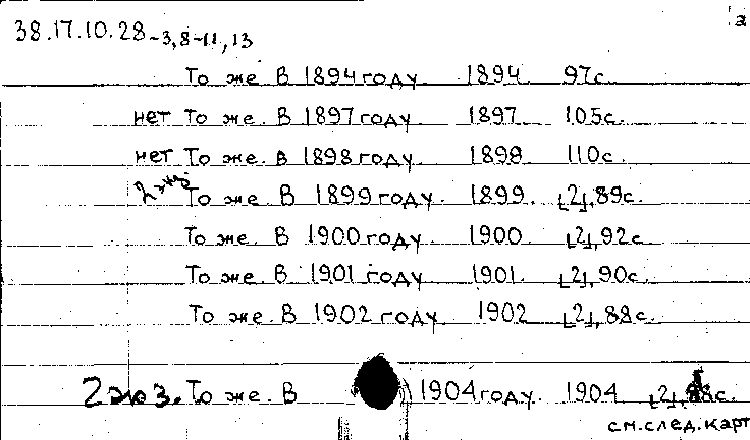 а
38.17.10.28-3,8-11,13
То же. В 1894 году 1894 97с.
нет То же. В 1897 году 1897. 105с.
нет То же. В 1898 году 1898 110с.
2 экз То же. В 1899 году. 1899. [2], 89с.
То же. В 1900 году. 1900. [2], 92с.
То же. В 1901 году. 1901. [2], 90с.
То же. В 1902 году. 1902 [2], 88с.
2 экз. То же. В 1904 году. 1904 [2], 88с.
см. след. карт